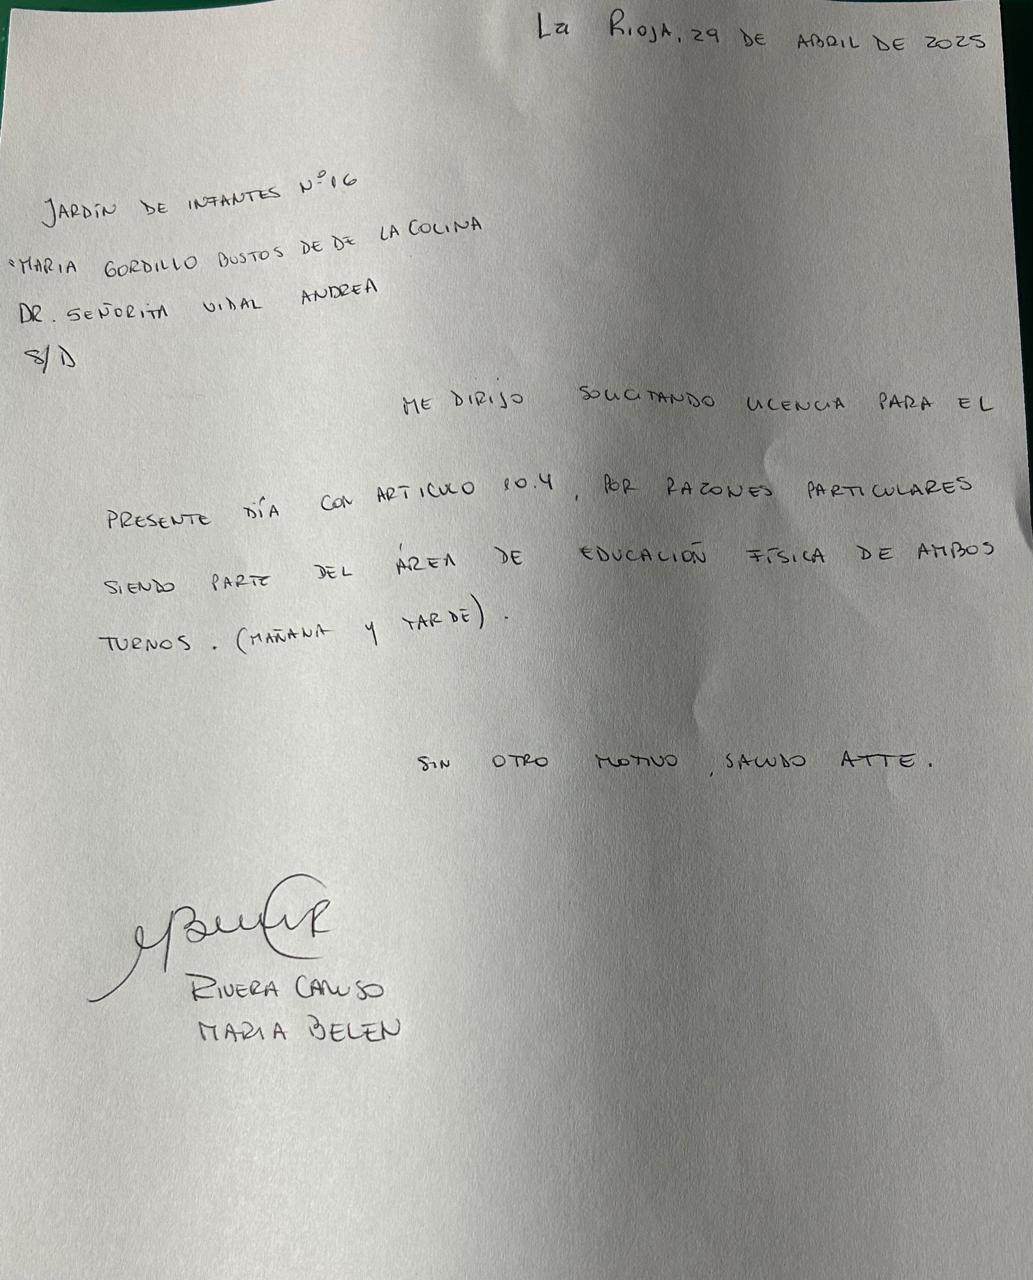 La Rioja, 29 DE ABRIL DE 2025
JARDÍN DE INFANTES Nº 16
"MARIA GORDILLO BUSTOS DE DE LA COLINA
DR. SEÑORITA VIDAL ANDREA
S/D
ME DIRIJO SOLICITANDO LICENCIA PARA EL
PRESENTE DÍA CON ARTICULO 10.4, POR RAZONES PARTICULARES
SIENDO PARTE DEL ÁREA DE EDUCACIÓN FÍSICA DE AMBOS
TURNOS. (MAÑANA Y TARDE).
SIN OTRO MOTIVO, SALUDO ATTE.
RIVERA CARUSO
MARIA BELEN